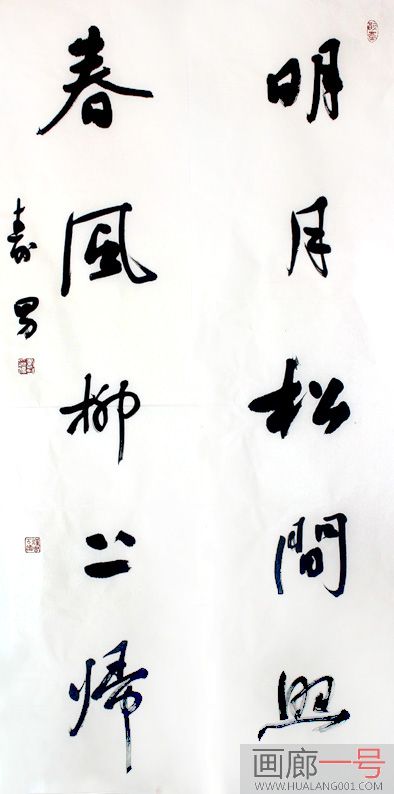 明月松間照
春風柳上歸
壽男
画廊一号
WWW.HUALANG001.COM